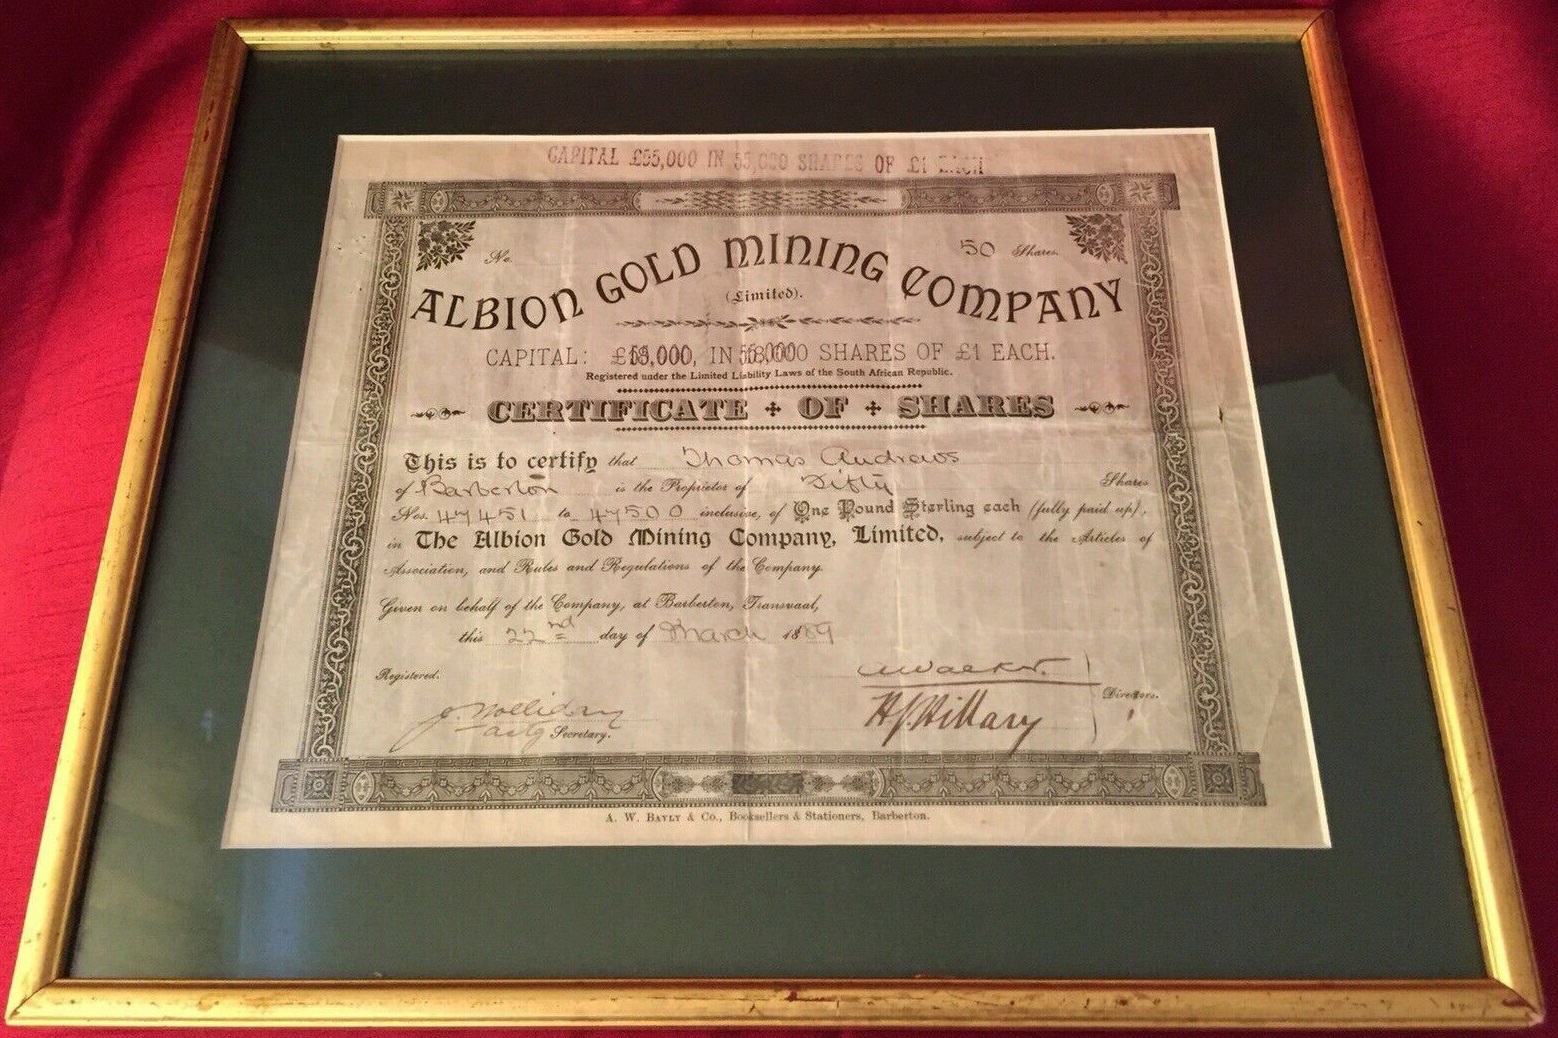 CAPITAL £55,000 IN 55,000 SHARES OF £1 EACH
No. 50 Shares.
ALBION GOLD MINING COMPANY
(Limited).
CAPITAL: ,000, IN SHARES OF £1 EACH.
Registered under the Limited Liability Laws of the South African Republic.
CERTIFICATE OF SHARES
This is to certify that Thomas Andrews
of Barberton is the Proprietor of Fifty Shares
Nos. 47451 to 47500 inclusive, of One Pound Sterling each (fully paid up),
in The Albion Gold Mining Company, Limited, subject to the Articles of
Association, and Rules and Regulations of the Company.
Given on behalf of the Company, at Barberton, Transvaal,
this 22nd day of March 1889
Registered.
AWalker.
J. Holliday
H J Hillary
Directors.
actg Secretary.
A. W. BAYLY & Co., Booksellers & Stationers, Barberton.